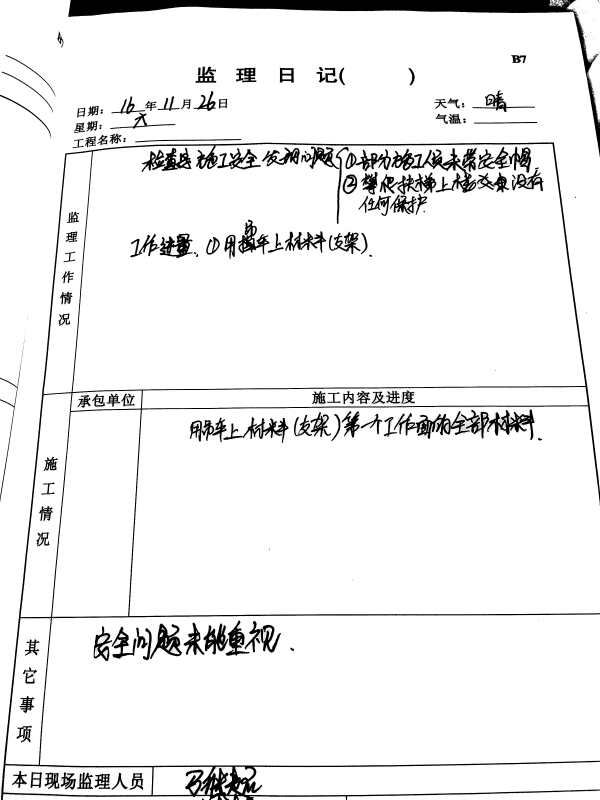 B7
监 理 日 记( )
日期: 16 年 11 月 26 日
天气: 晴
星期: 六
气温:
工程名称:
监理工作情况
检查 施工安全 发现问题 ①部分施工人员未带安全帽
②攀爬扶梯上楼 没有
任何保护.
工作进量. ①用吊车上材料(支架).
承包单位
施工内容及进度
施工情况
用吊车上材料(支架)第一个工作面的全部材料.
其它事项
安全问题未能重视.
本日现场监理人员